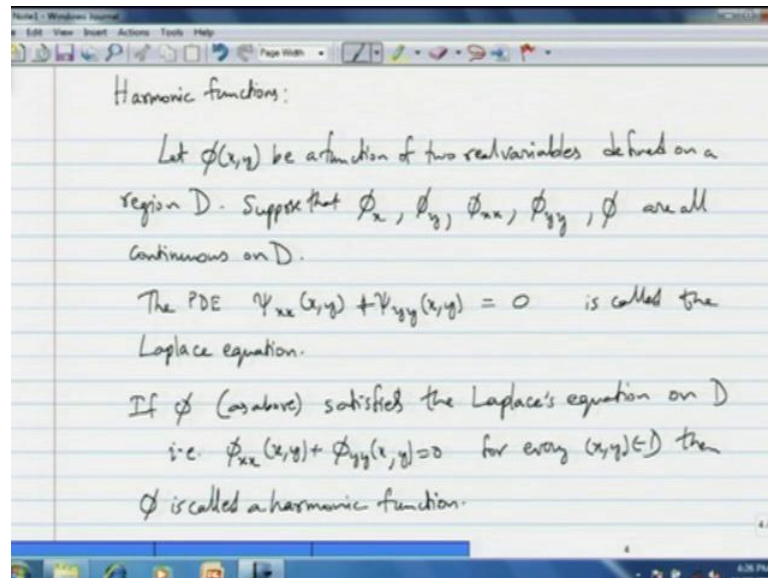 Note1 - Windows Journal
Edit View Insert Actions Tools Help
Page Width
Harmonic functions:
Let ϕ(x,y) be a function of two real variables defined on a
region D. Suppose that ϕ_x, ϕ_y, ϕ_xx, ϕ_yy, ϕ are all
continuous on D.
The PDE Ψ_xx(x,y) + Ψ_yy(x,y) = 0 is called the
Laplace equation.
If ϕ (as above) satisfies the Laplace's equation on D
i.e. ϕ_xx(x,y) + ϕ_yy(x,y) = 0 for every (x,y) ∈ D then
ϕ is called a harmonic function.
4